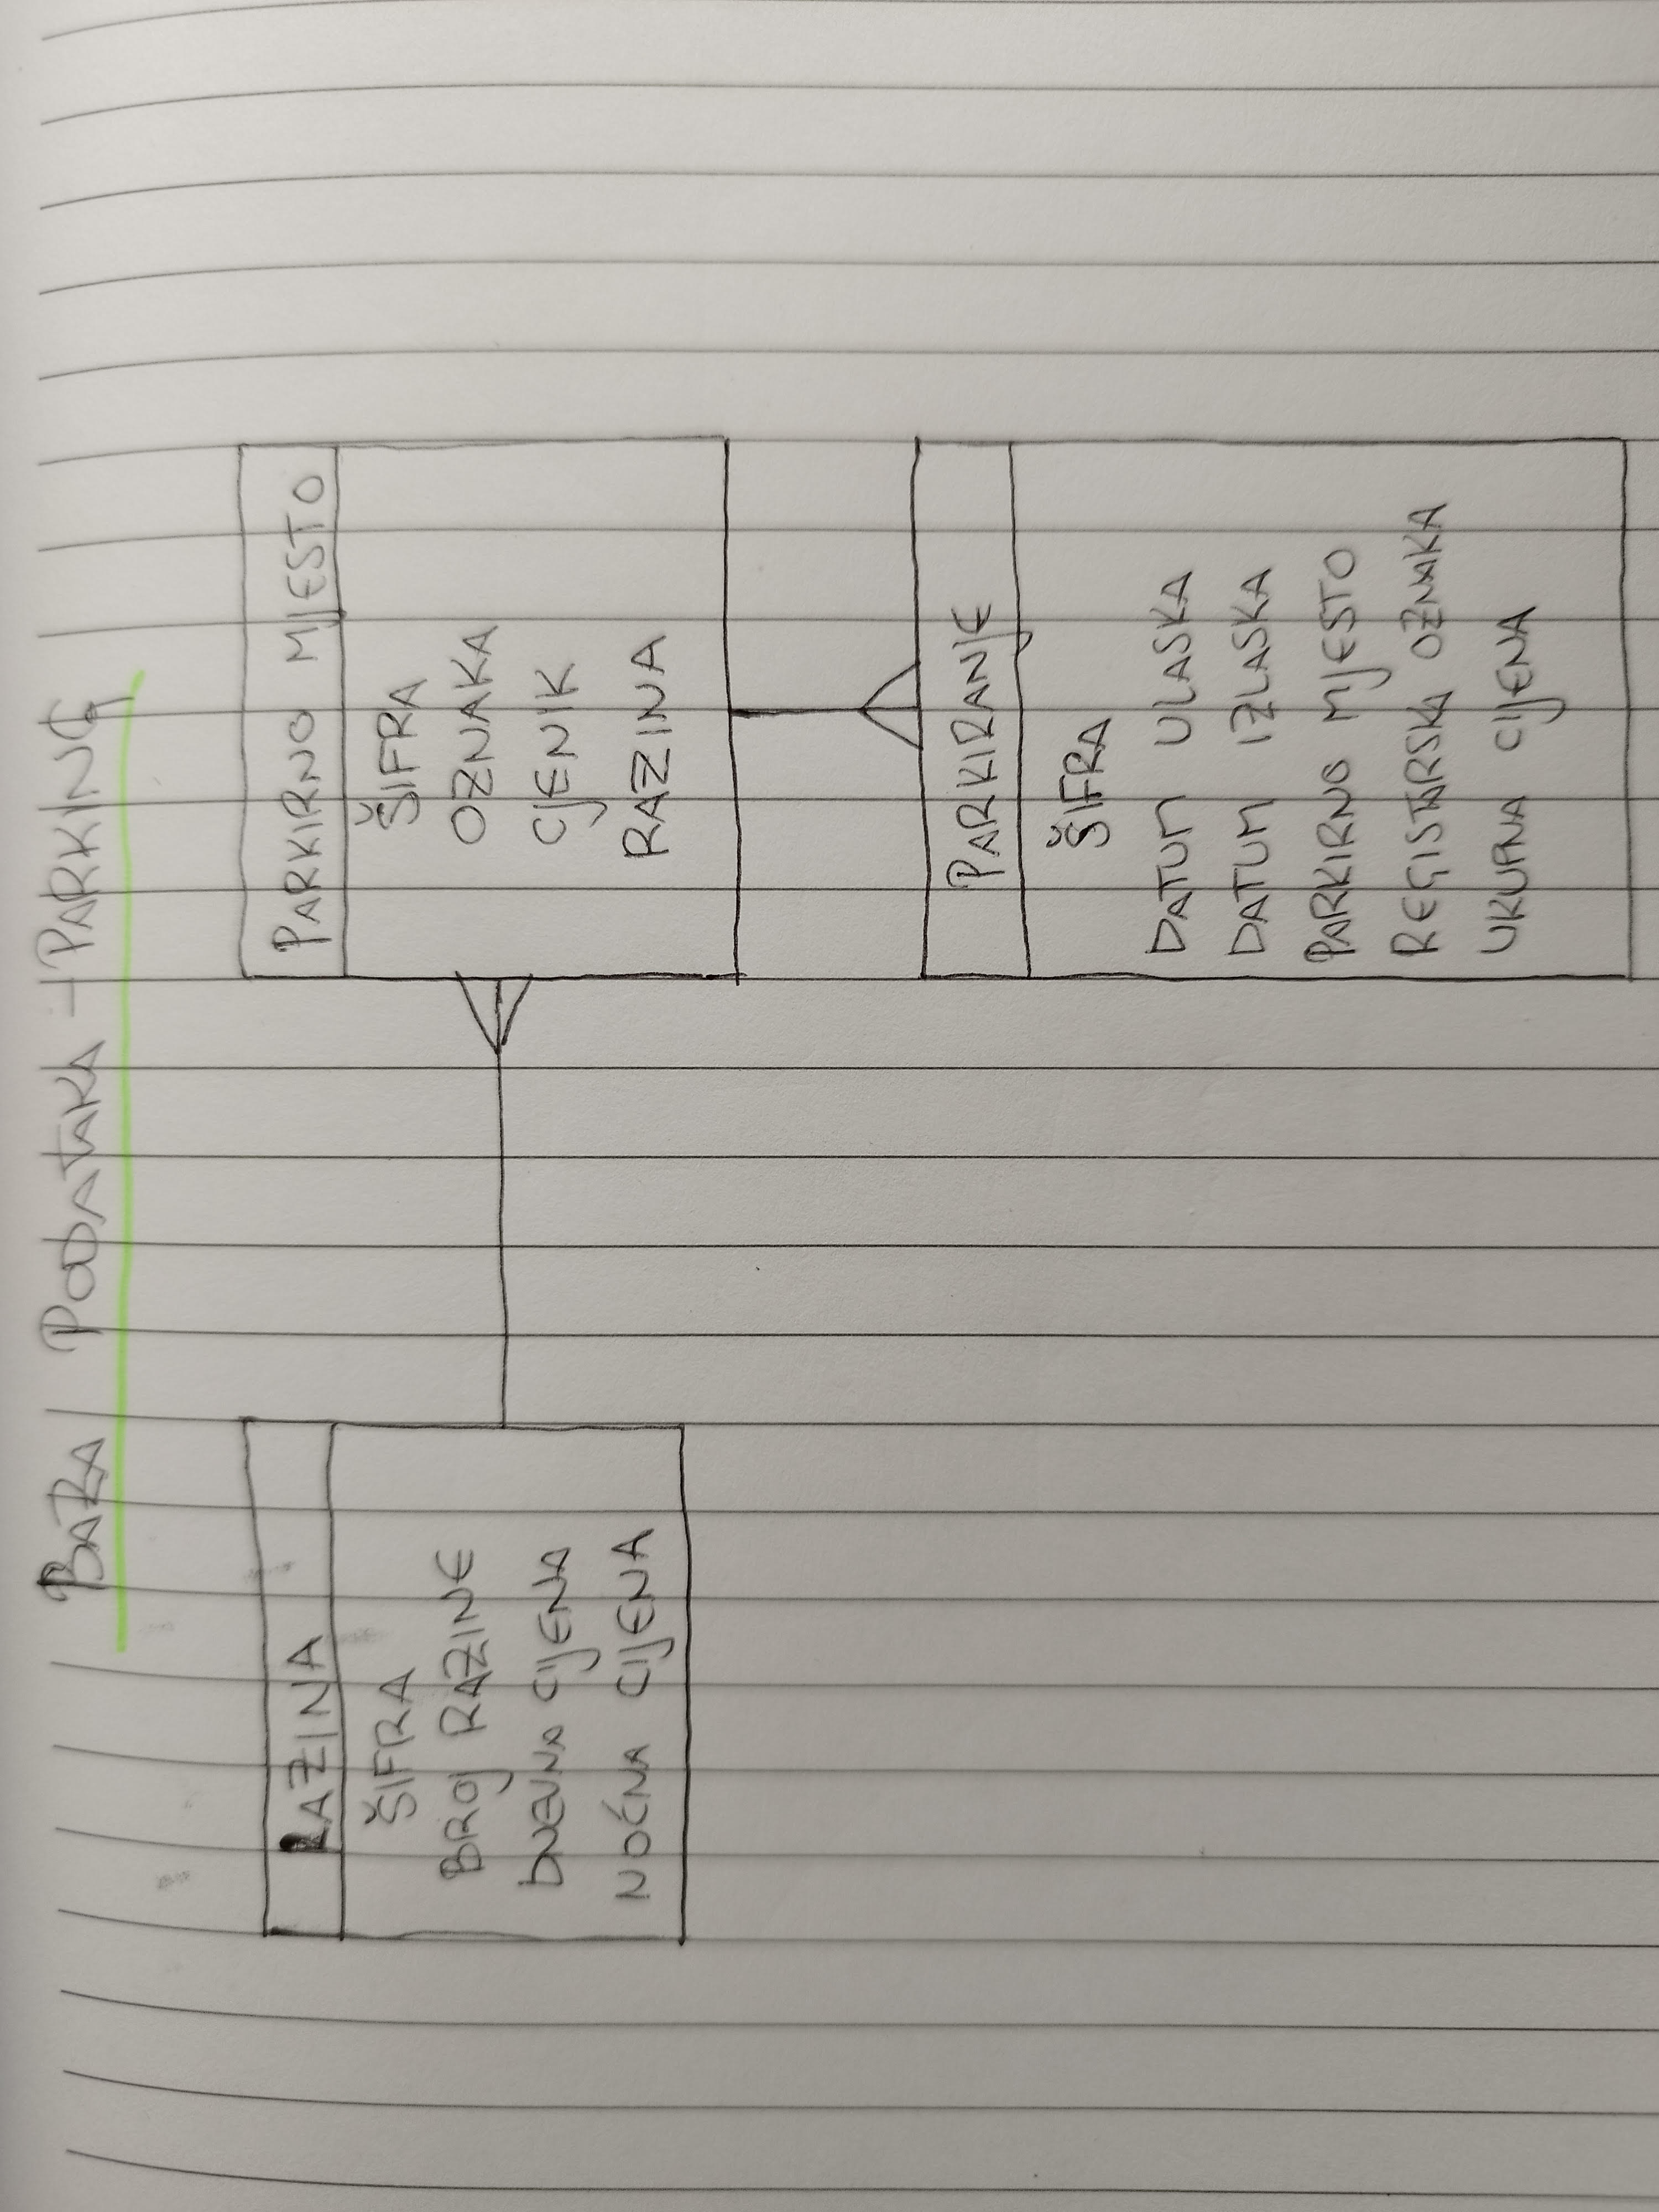 BAZA PODATAKA - PARKING
RAZINA
ŠIFRA
BROJ RAZINE
DNEVNA CIJENA
NOĆNA CIJENA
PARKIRNO MJESTO
ŠIFRA
OZNAKA
CJENIK
RAZINA
PARKIRANJE
ŠIFRA
DATUM ULASKA
DATUM IZLASKA
PARKIRNO MJESTO
REGISTARSKA OZNAKA
UKUPNA CIJENA